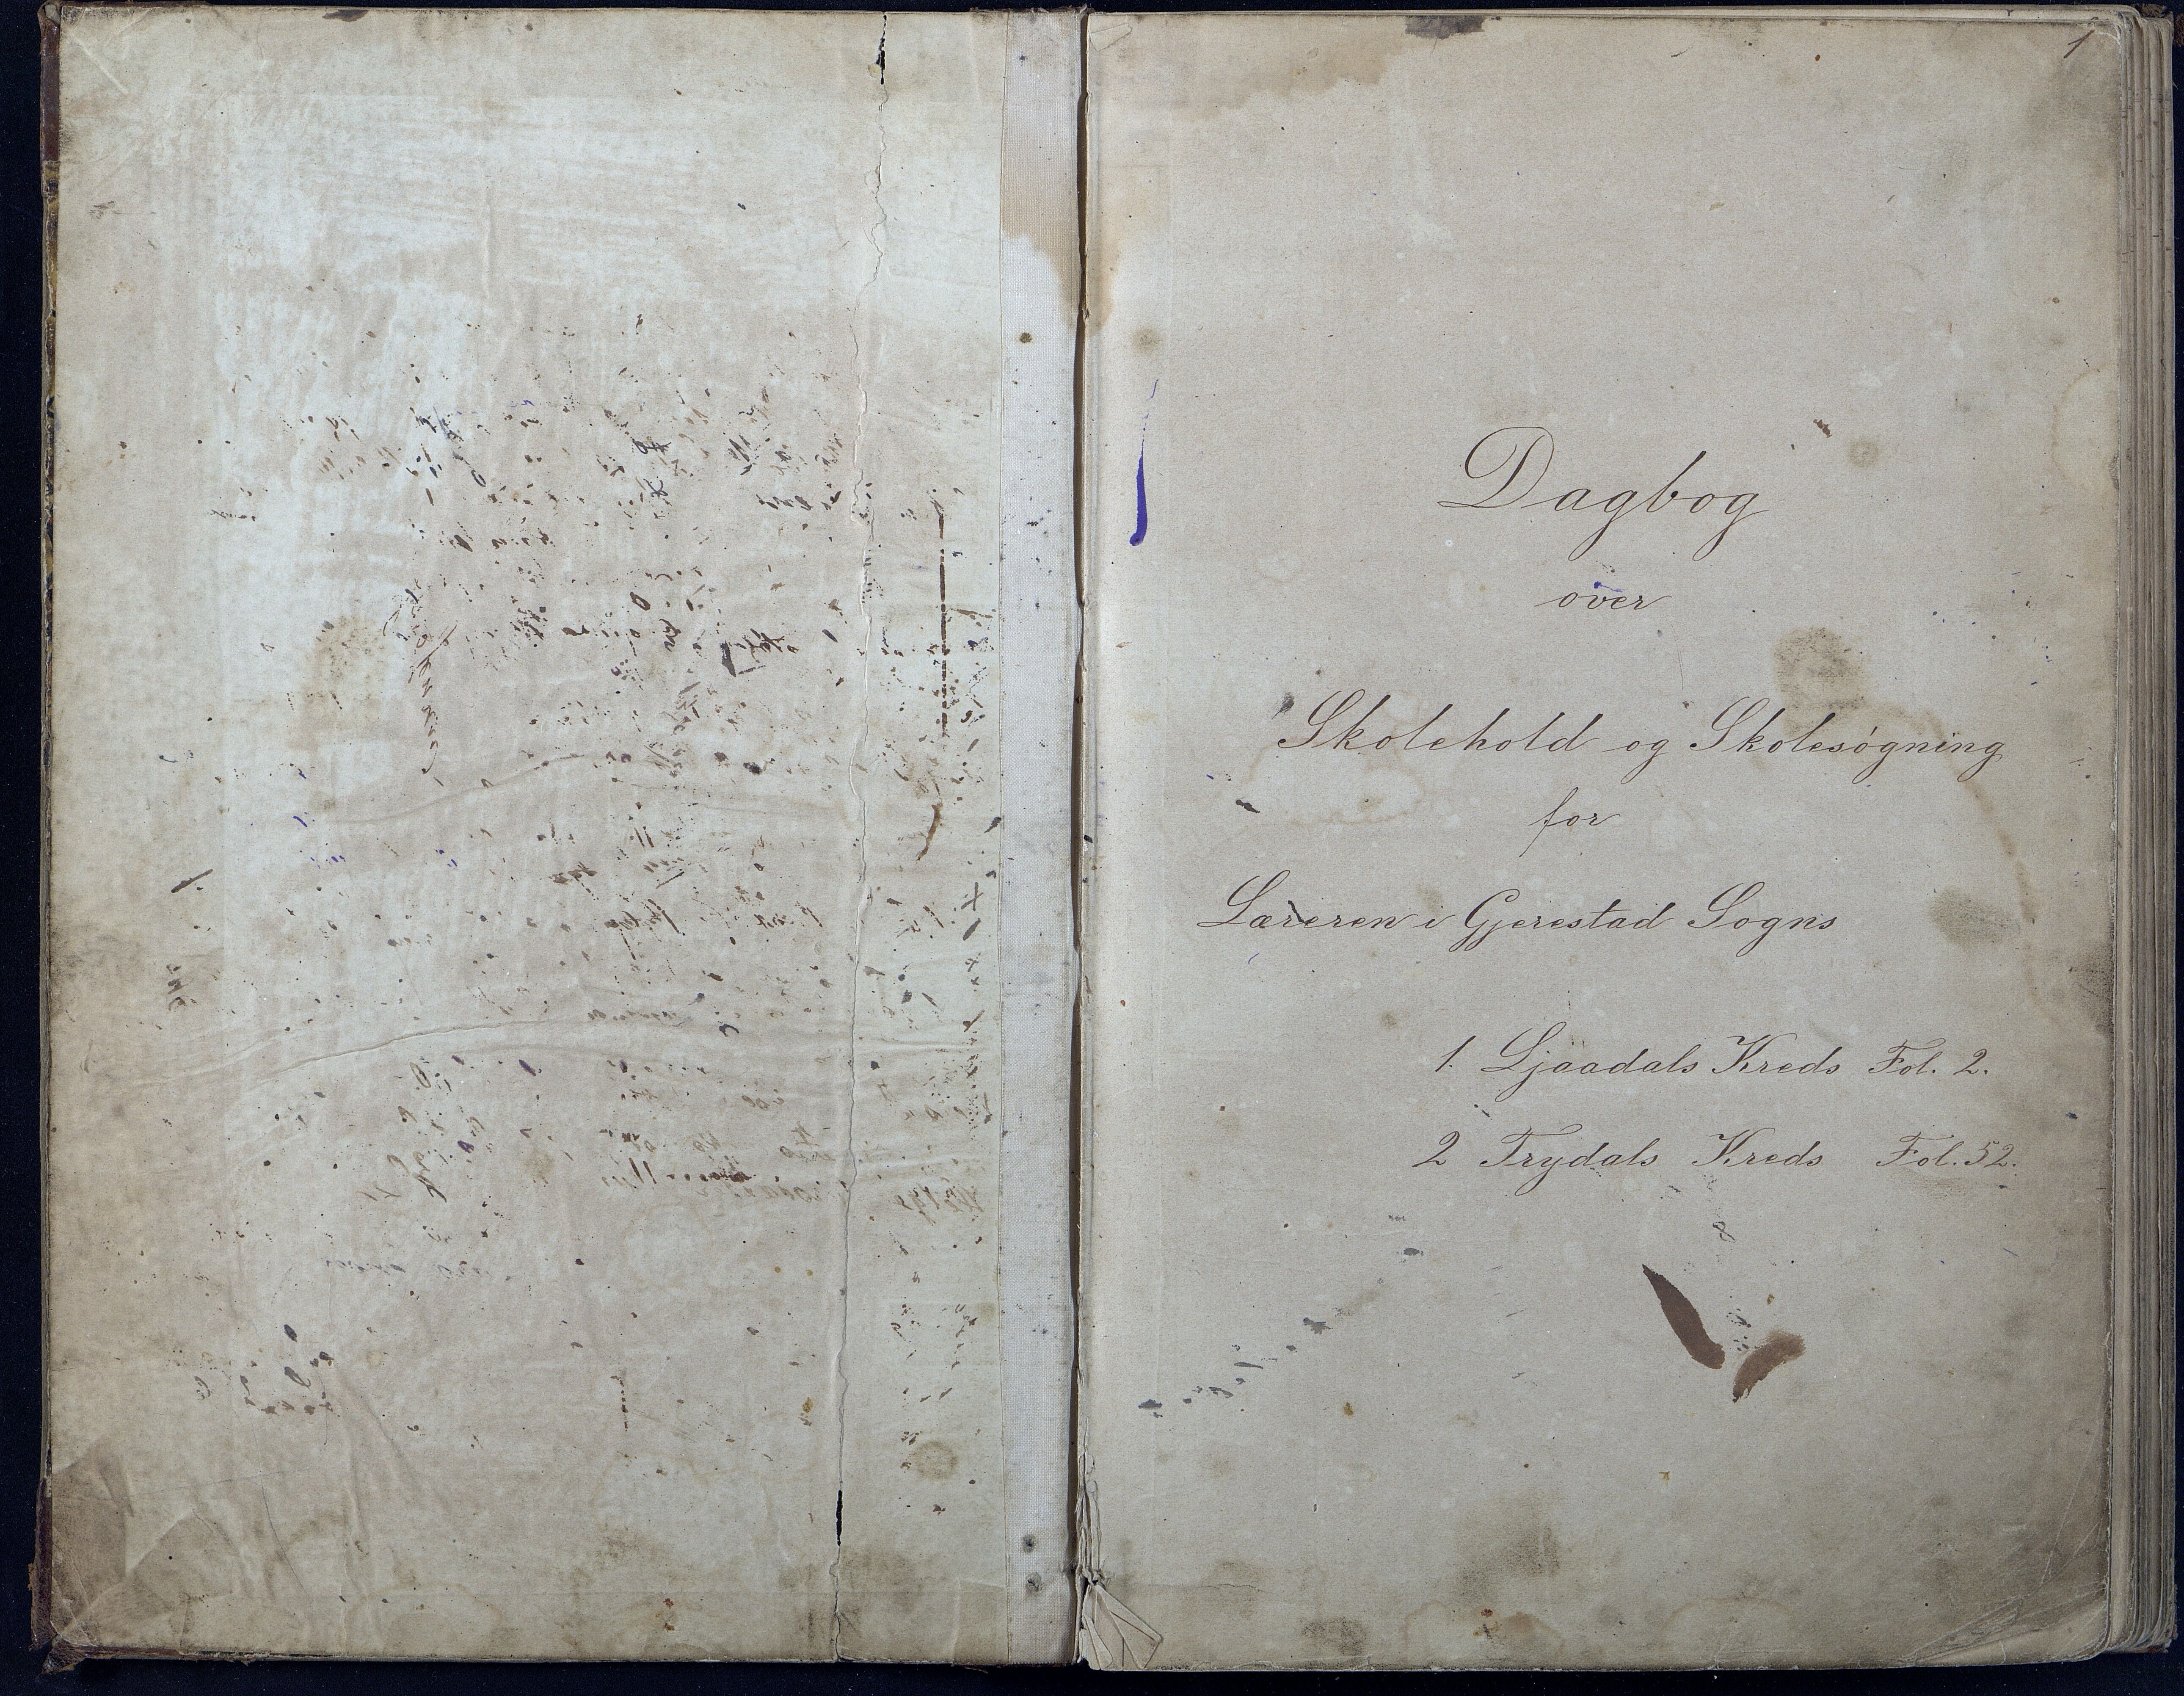 1
Dagbog
over
Skolehold og Skolesøgning
for
Læreren i Gjerestad Sogns
1. Ljaadals Kreds Fol. 2.
2 Trydals Kreds Fol. 52.